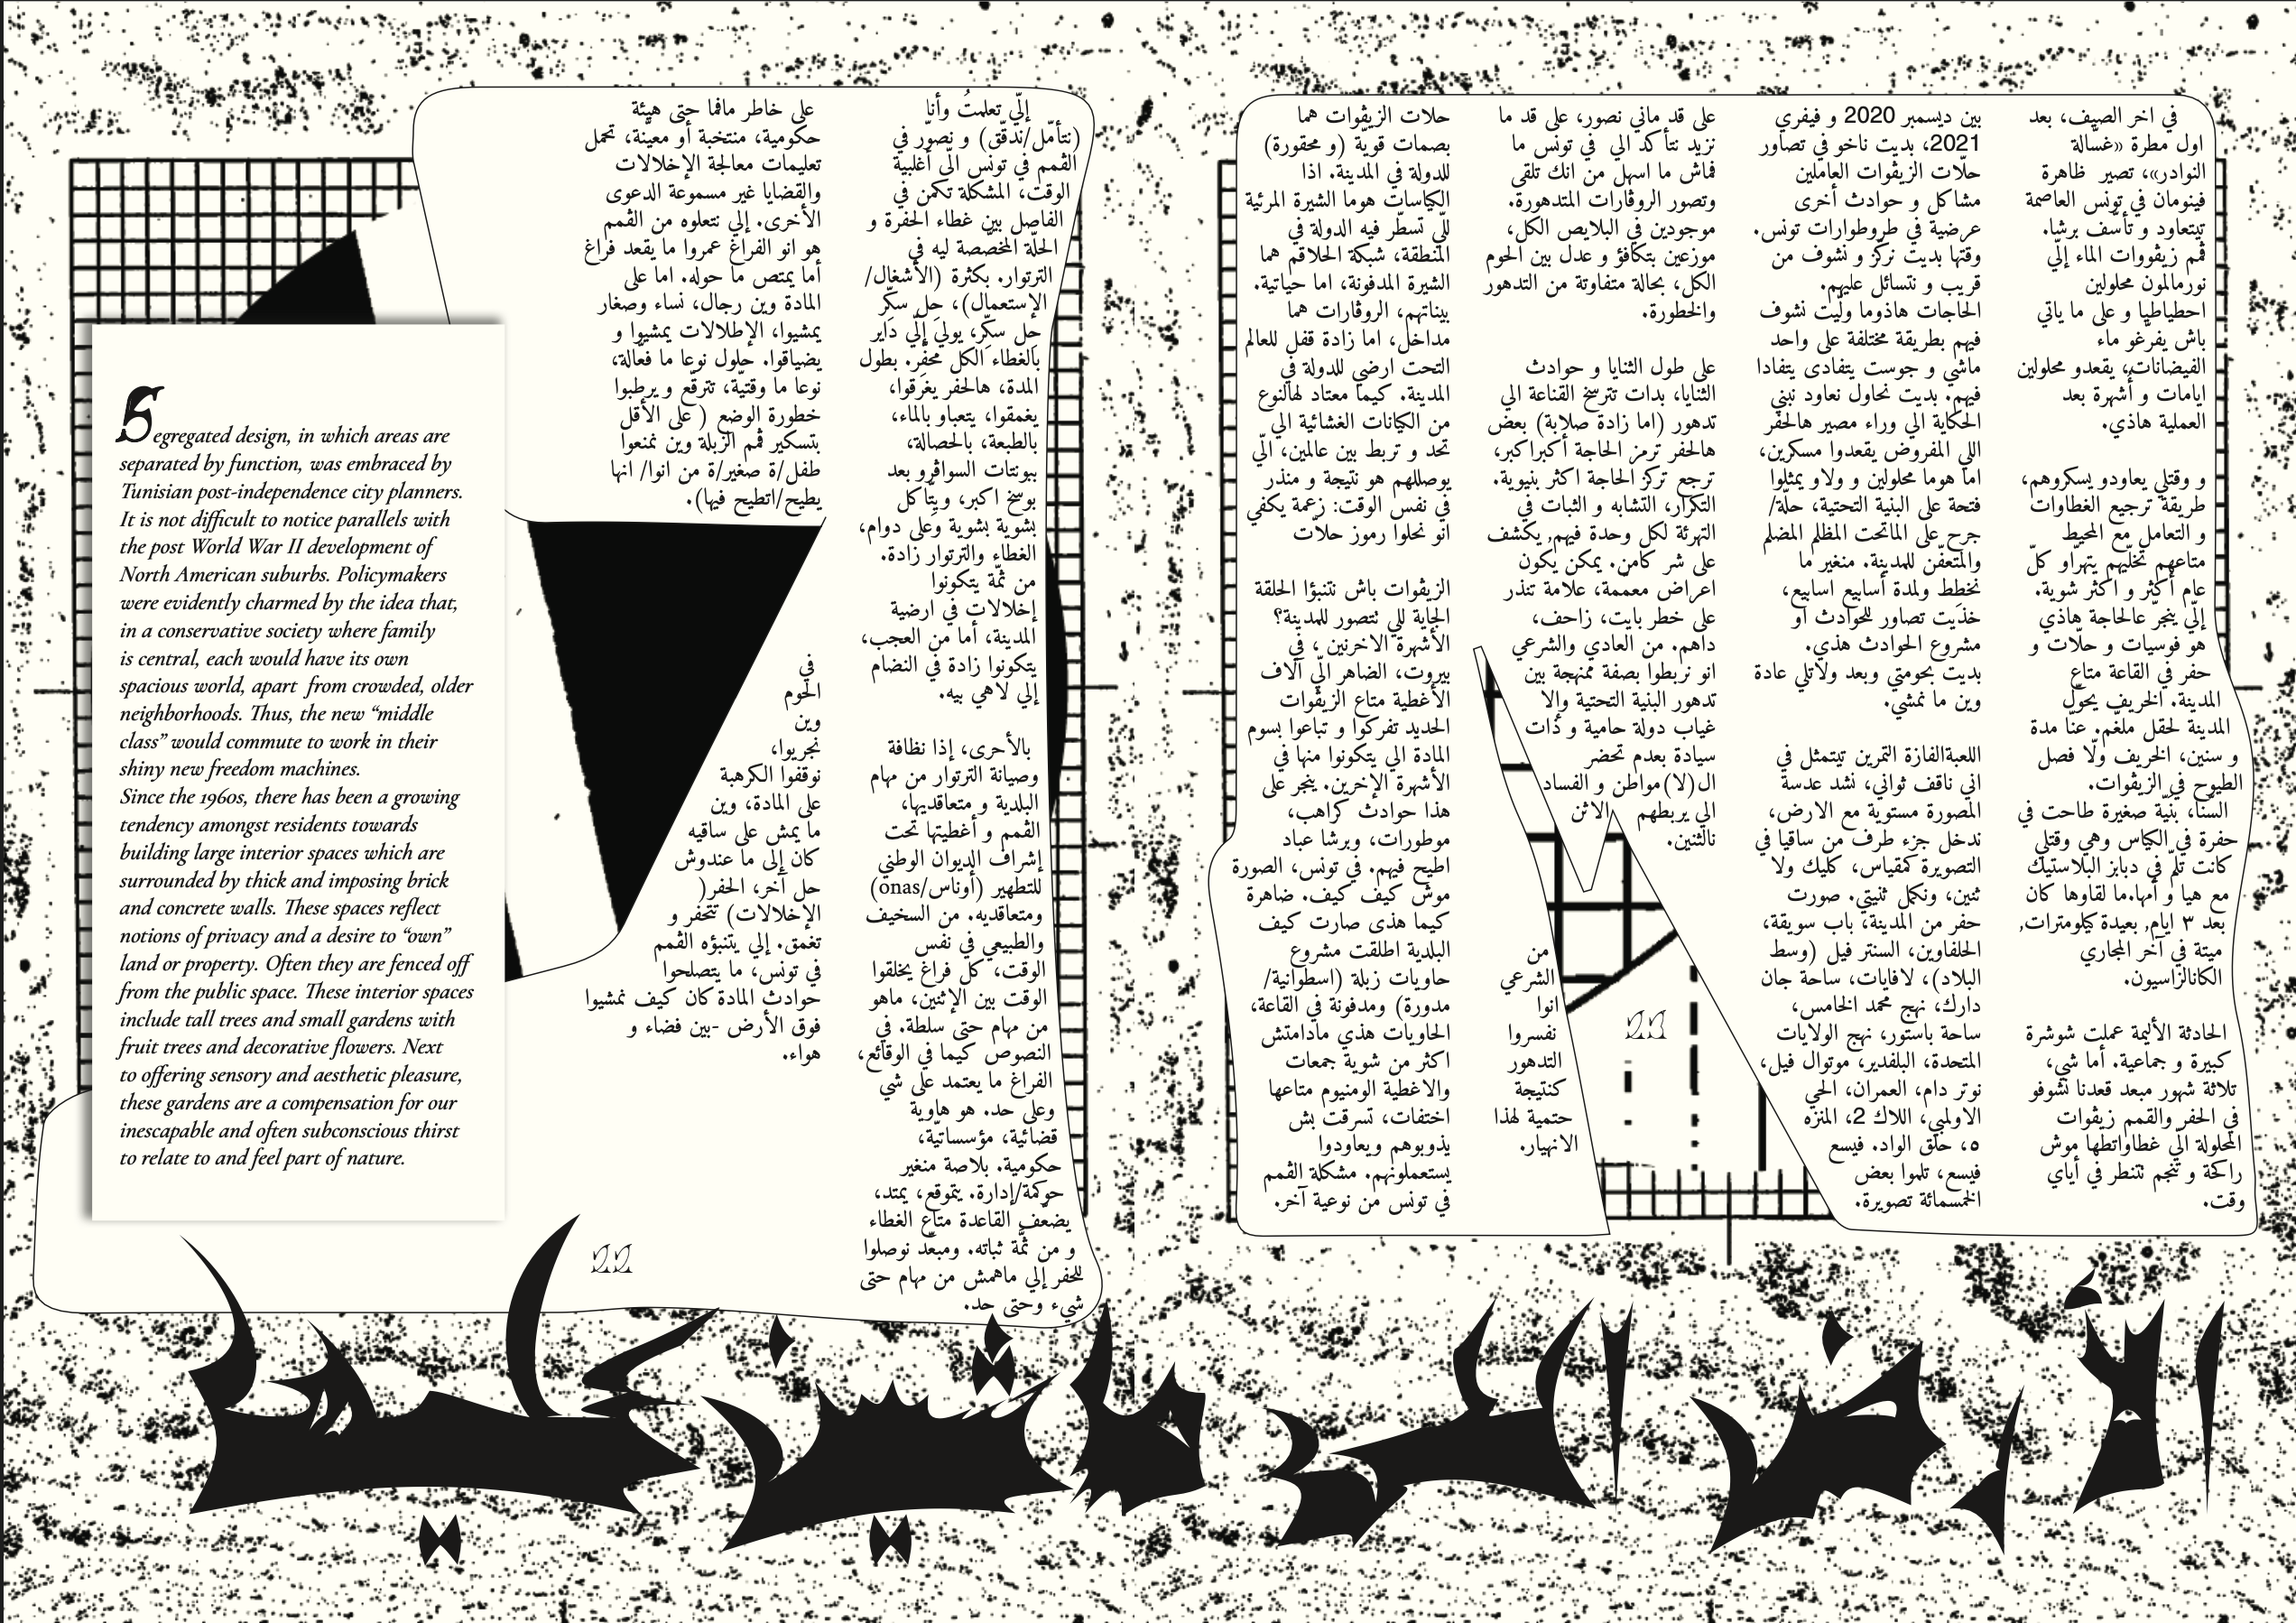 في اخر الصيف، بعد
اول مطرة «غسّالة
النوادر»، تصير ظاهرة
فينومان في تونس العاصمة
تيتعاود و تأسّف برشا.
ڨمم زيڨووات الماء إلّي
نورمالمون محلولين
احطياطيا و على ما ياتي
باش يفرّغو ماء
الفيضانات، يقعدو محلولين
ايامات و أشهرة بعد
العملية هاذي.
و وقتلي يعاودو يسكروهم،
طريقة ترجيع الغطاوات
و التعامل مع المحيط
متاعهم تخلّيهم يتهرّاو كلّ
عام أكثر و اكثر شوية.
إلّي ينجرّ عالحاجة هاذي
هو فوسيات و حلّات و
حفر في القاعة متاع
المدينة. الخريف يحوّل
المدينة لحقل ملغّم. عنّا مدة
و سنين، الخريف ولّا فصل
الطيوح في الزيڨوات.
السنّا، بنيّة صغيرة طاحت في
حفرة في الكياس وهي وقتلي
كانت تلمّ في دبابز البلاستيك
مع هيا و أمها.ما لقاوها كان
بعد ٣ ايام, بعيدة كيلومترات,
ميتة في آخر المجاري
الكانالزاسيون.
الحادثة الأليمة عملت شوشرة
كبيرة و جماعية. أما شي،
تلاثة شهور مبعد قعدنا نشوفو
في الحفر والڨمم زيڨوات
المحلولة الّي غطاواتطها موش
راكحة و تنجم تتنطر في أياي
وقت.
بين ديسمبر 2020 و فيفري
2021، بديت ناخو في تصاور
حلّات الزيڨوات العاملين
مشاكل و حوادث أخرى
عرضية في طروطوارات تونس.
وقتها بديت نركّز و نشوف من
قريب و نتسائل عليهم.
الحاجات هاذوما وليت نشوف
فيهم بطريقة مختلفة على واحد
ماشي و جوست يتفادى يتفادا
فيهم. بديت نحاول نعاود نبني
الحكاية الي وراء مصير هالحفر
اللي المفروض يقعدوا مسكرين،
اما هوما محلولين و ولاو يمثلوا
فتحة على البنية التحتية، حلّة/
جرح على الماتحت المظلم المضلم
والمتعفّن للمدينة. منغير ما
نخطط ولمدة أسابيع اسابيع،
خذيت تصاور للحوادث او
مشروع الحوادث هذي.
بديت بحومتي وبعد ولاتلي عادة
وين ما نمشي.
اللعبةالفازة التمرين تيتمثل في
اني ناقف ثواني، نشد عدسة
المصورة مستوية مع الارض،
ندخل جزء طرف من ساقيا في
التصويرة كمقياس، كليك ولا
ثنين، ونكمل ثنيتي. صورت
حفر من المدينة، باب سويقة،
الحلفاوين، السنتر فيل (وسط
البلاد)، لافايات، ساحة جان
دارك، نهج محمد الخامس،
ساحة باستور، نهج الولايات
المتحدة، البلفدير، موتوال فيل،
نوتر دام، العمران، الحي
الاولمبي، اللاك 2، المنزه
٥، حلق الواد. فيسع
فيسع، تلموا بعض
الخمسمائة تصويرة.
على قد ماني نصور، على قد ما
نزيد نتأكد الي في تونس ما
فماش ما اسهل من انك تلقى
وتصور الروڨارات المتدهورة.
موجودين في البلايص الكل،
موزعين بتكافؤ و عدل بين الحوم
الكل، بحالة متفاوتة من التدهور
والخطورة.
على طول الثنايا و حوادث
الثنايا، بدات تترسخ القناعة الي
تدهور (اما زادة صلابة) بعض
هالحفر ترمز الحاجة أكبراكبر،
ترجع تركز الحاجة اكثر بنيوية.
التكرار، التشابه و الثبات في
التهرئة لكل وحدة فيهم, يكشف
على شر كامن. يمكن يكون
اعراض معممة، علامة تنذر
على خطر بايت، زاحف،
داهم. من العادي والشرعي
انو نربطوا بصفة ممنهجة بين
تدهور البنية التحتية وإلا
غياب دولة حامية و ذات
سيادة بعدم تحضر
ال(لا)مواطن و الفساد
الي يربطهم الاثن
نالثنين.
من
الشرعي
انوا
نفسروا
التدهور
كنتيجة
حتمية لهذا
الانهيار.
حلات الزيڨوات هما
بصمات قوية (و محقورة)
للدولة في المدينة. اذا
الكياسات هوما الشيرة المرئية
للّي تسطّر فيه الدولة في
المنطقة، شبكة الحلاقم هما
الشيرة المدفونة، اما حياتية.
بيناتهم، الروڨارات هما
مداخل، اما زادة قفل للعالم
التحت ارضي للدولة في
المدينة. كيما معتاد لهالنوع
من الكيانات الغشائية الي
تحد و تربط بين عالمين، الّي
يوصللهم هو نتيجة و منذر
في نفس الوقت: زعمة يكفي
انو نحلوا رموز حلات
الزيڨوات باش نتنبؤا الحلقة
الجاية للي تتصور للمدينة؟
الأشهرة الاخرنين ، في
بيروت، الضاهر الّي آلاف
الأغطية متاع الزيڨوات
الحديد تفركوا و تباعوا بسوم
المادة الي يتكونوا منها في
الأشهرة الإخرين. ينجر على
هذا حوادث كراهب،
موطورات، وبرشا عباد
اطيح فيهم. في تونس، الصورة
موش كيف كيف. ضاهرة
كيما هذى صارت كيف
البلدية اطلقت مشروع
حاويات زبلة (اسطوانية/
مدورة) ومدفونة في القاعة،
الحاويات هذي مادامتش
اكثر من شوية جمعات
والاغطية الومنيوم متاعها
اختفات، تسرقت بش
يذوبوهم ويعاودوا
يستعملونهم. مشكلة الڨمم
في تونس من نوعية آخر.
إلّي تعلمتُ وأنا
(نتأمّل/ندقّق) و نصوّر في
الڨمم في تونس الّي أغلبية
الوقت، المشكلة تكمن في
الفاصل بين غطاء الحفرة و
الحلّة المخصّصة ليه في
الترتوار. بكثرة (الأشغال/
الإستعمال)، حِل سكّر
حِل سكّر، يولي إلّي دَاير
بالغطاء الكل محفّر. بطول
المدة، هالحفر يغرقوا،
يغمقوا، يتعباو بالماء،
بالطبعة، بالحصالة،
ببونتات السواڨرو بعد
بوسخ اكبر، ويتّاكل
بشوية بشوية وعلى دوام،
الغطاء والترتوار زادة.
من ثمّة يتكونوا
إخلالات في ارضية
المدينة، أما من العجب،
يتكونوا زادة في النضام
إلي لاهي بيه.
بالأحرى، إذا نظافة
وصيانة الترتوار من مهام
البلدية و متعاقديها،
الڨمم و أغطيتها تحت
إشراف الديوان الوطني
للتطهير (أوناس/onas)
ومتعاقديه. من السخيف
والطبيعي في نفس
الوقت، كل فراغ يخلقوا
الوقت بين الإثنين، ماهو
من مهام حتى سلطة. في
النصوص كيما في الوقائع،
الفراغ ما يعتمد على شي
وعلى حد. هو هاوية
قضائية، مؤسساتيّة،
حكومية. بلاصة منغير
حوكمة/إدارة. يتموقع، يمتد،
يضعّف القاعدة متاع الغطاء
و من ثمّة ثباته. ومبعّد نوصلوا
للحفر إلي ماهمش من مهام حتى
شيء وحتى حد.
على خاطر مافما حتى هيئة
حكومية، منتخبة أو معيّنة، تحمل
تعليمات معالجة الإخلالات
والقضايا غير مسموعة الدعوى
الأخرى. إلي نتعلوه من الڨمم
هو انو الفراغ عمروا ما يقعد فراغ
أما يمتص ما حوله. اما على
المادة وين رجال، نساء وصغار
يمشيوا، الإطلالات يمشيوا و
يضياقوا. حلول نوعا ما فعّالة،
نوعا ما وقتيّة، تترقّع و يرطبوا
خطورة الوضع ( على الأقل
بتسكير ڨمم الزبلة وين نمنعوا
طفل/ة صغير/ة من انوا/ انها
يطيح/اتطيح فيها).
في
الحوم
وين
نجريوا،
نوقفوا الكرهبة
على المادة، وين
ما يمش على ساقيه
كان إلى ما عندوش
حل آخر، الحفر(
الإخلالات) تتحفر و
تغمق. إلي يتنبؤه الڨمم
في تونس، ما يتصلحوا
حوادث المادة كان كيف نمشيوا
فوق الأرض -بين فضاء و
هواء.
Segregated design, in which areas are
separated by function, was embraced by
Tunisian post-independence city planners.
It is not difficult to notice parallels with
the post World War II development of
North American suburbs. Policymakers
were evidently charmed by the idea that,
in a conservative society where family
is central, each would have its own
spacious world, apart from crowded, older
neighborhoods. Thus, the new “middle
class” would commute to work in their
shiny new freedom machines.
Since the 1960s, there has been a growing
tendency amongst residents towards
building large interior spaces which are
surrounded by thick and imposing brick
and concrete walls. These spaces reflect
notions of privacy and a desire to “own”
land or property. Often they are fenced off
from the public space. These interior spaces
include tall trees and small gardens with
fruit trees and decorative flowers. Next
to offering sensory and aesthetic pleasure,
these gardens are a compensation for our
inescapable and often subconscious thirst
to relate to and feel part of nature.